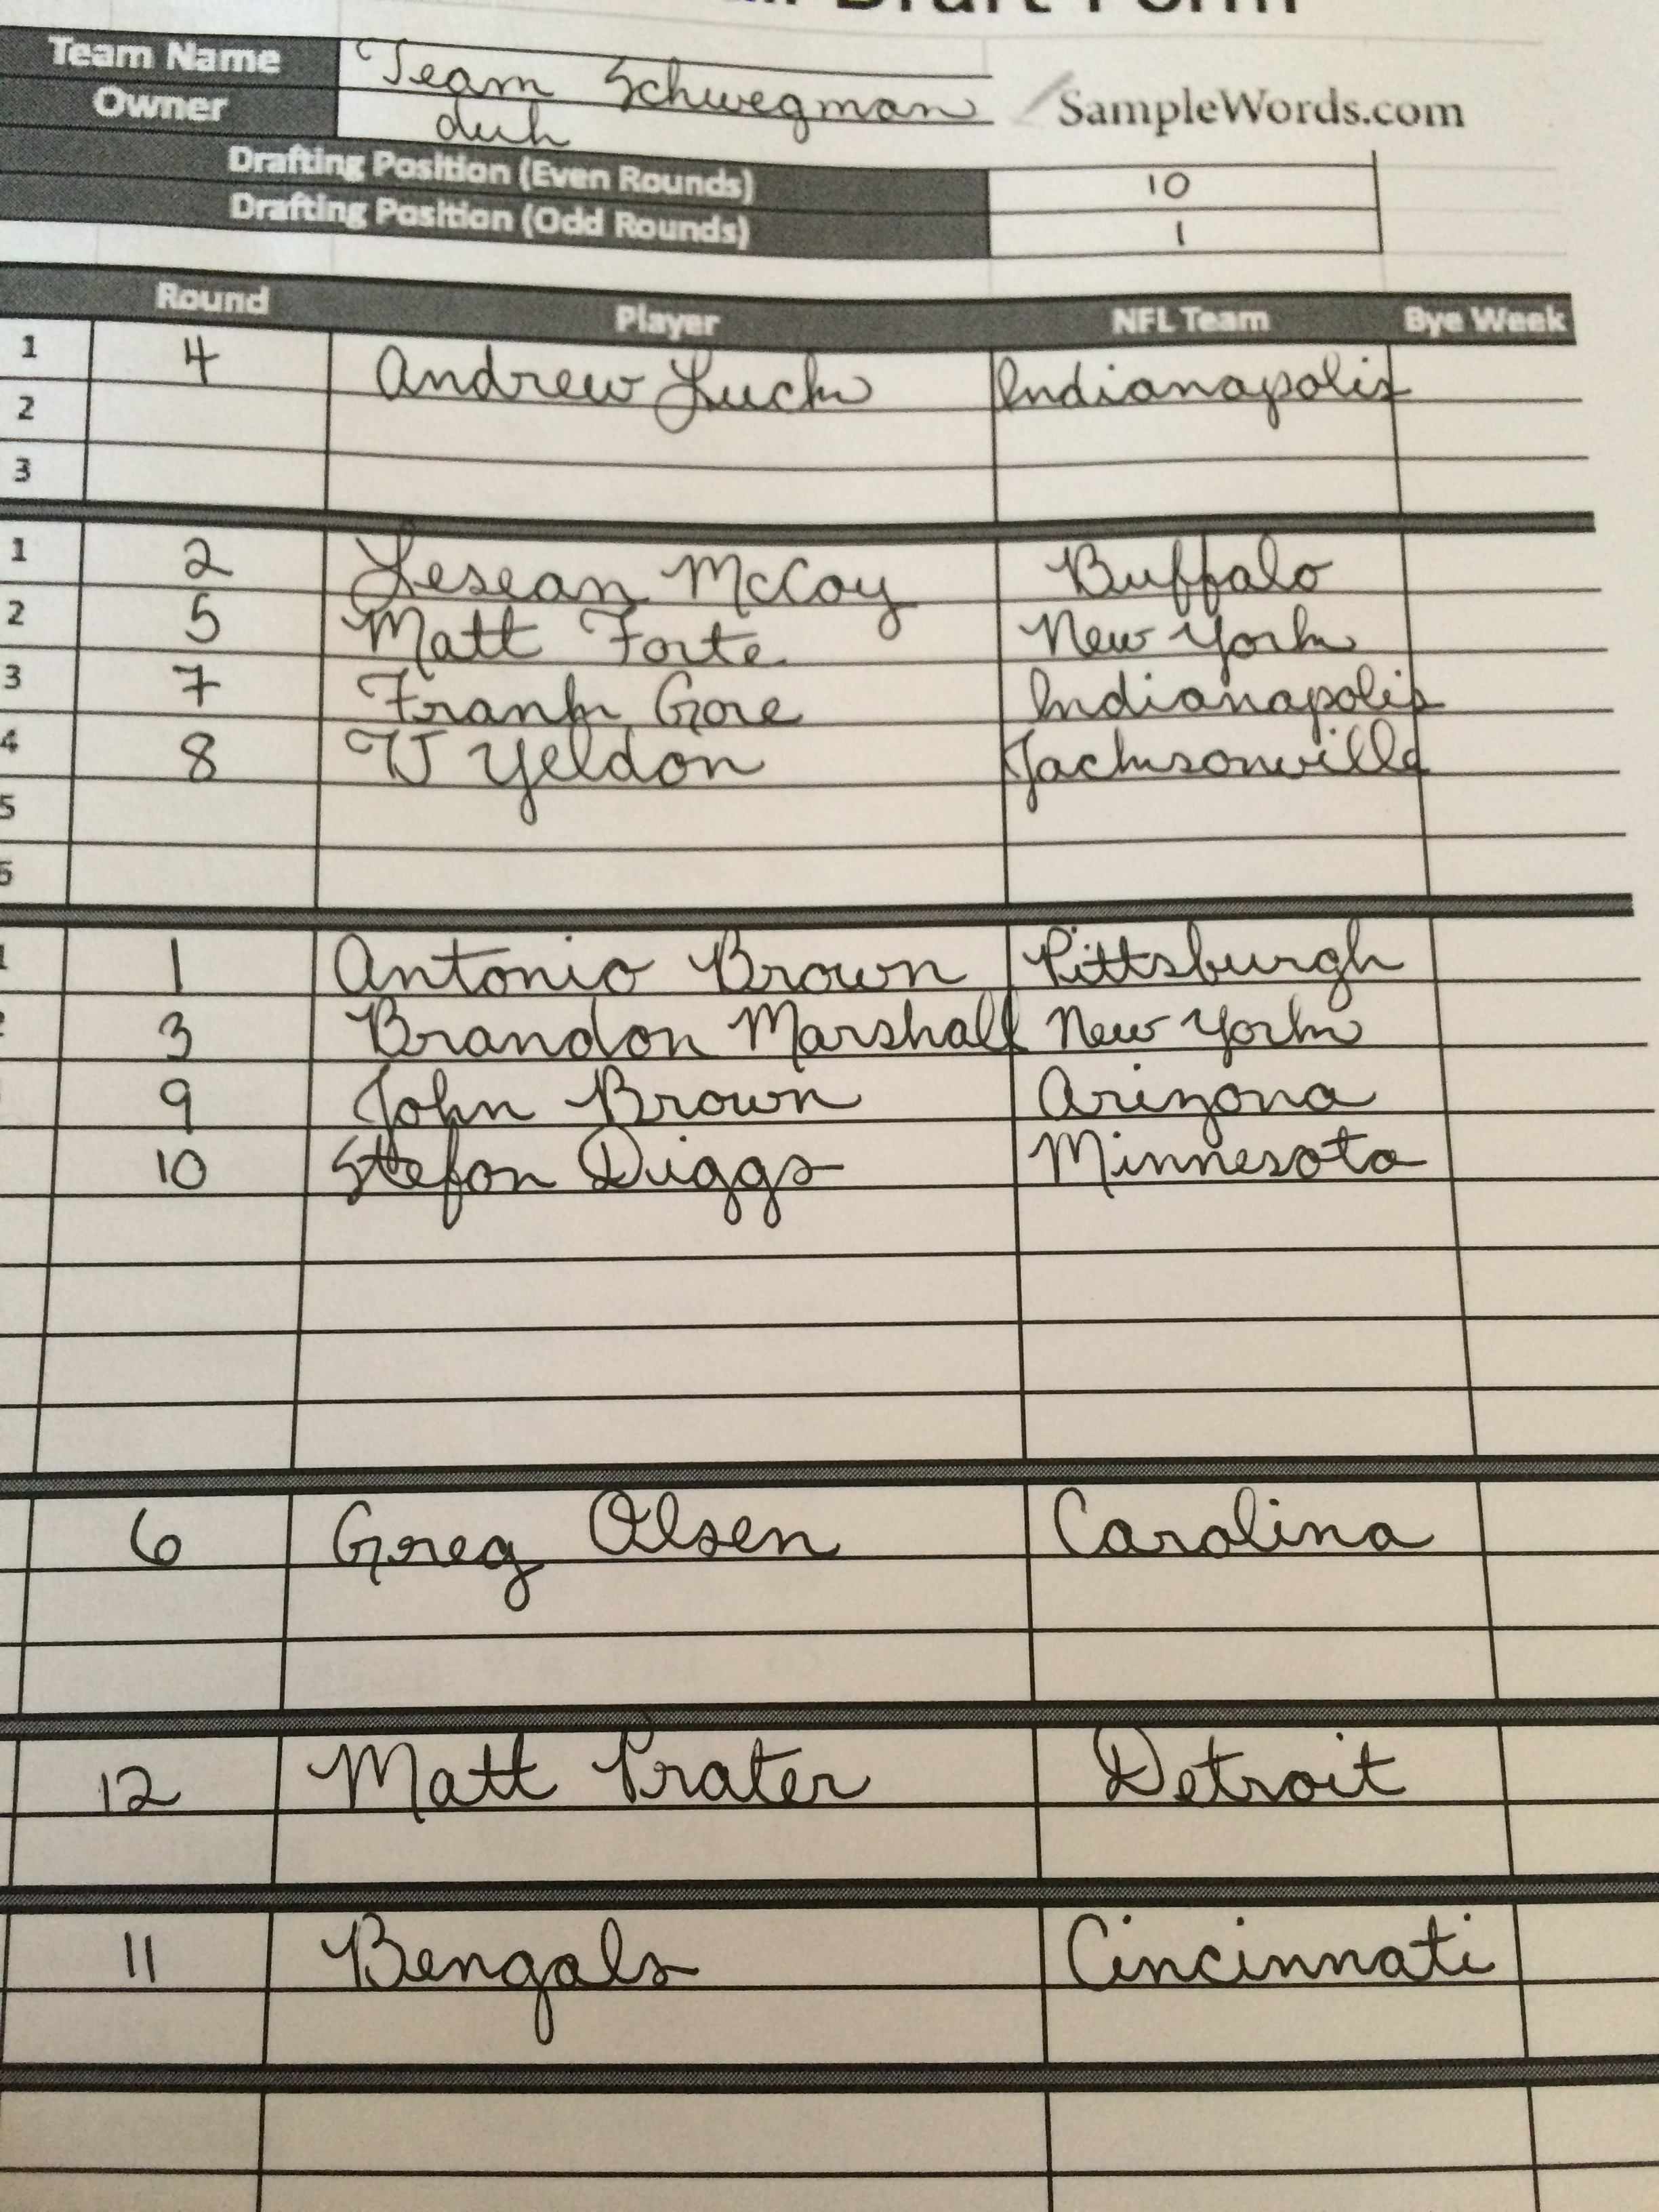 Draft Form
Team Name Team Schwegman
Owner duh
SampleWords.com
Drafting Position (Even Rounds) 10
Drafting Position (Odd Rounds) 1
Round Player NFL Team Bye Week
1 4 Andrew Luck Indianapolis
2
3
1 2 Lesean McCoy Buffalo
2 5 Matt Forte New York
3 7 Frank Gore Indianapolis
4 8 TJ Yeldon Jacksonville
5
6
1 1 Antonio Brown Pittsburgh
2 3 Brandon Marshall New York
9 John Brown Arizona
10 Stefon Diggs Minnesota
6 Greg Olsen Carolina
12 Matt Prater Detroit
11 Bengals Cincinnati